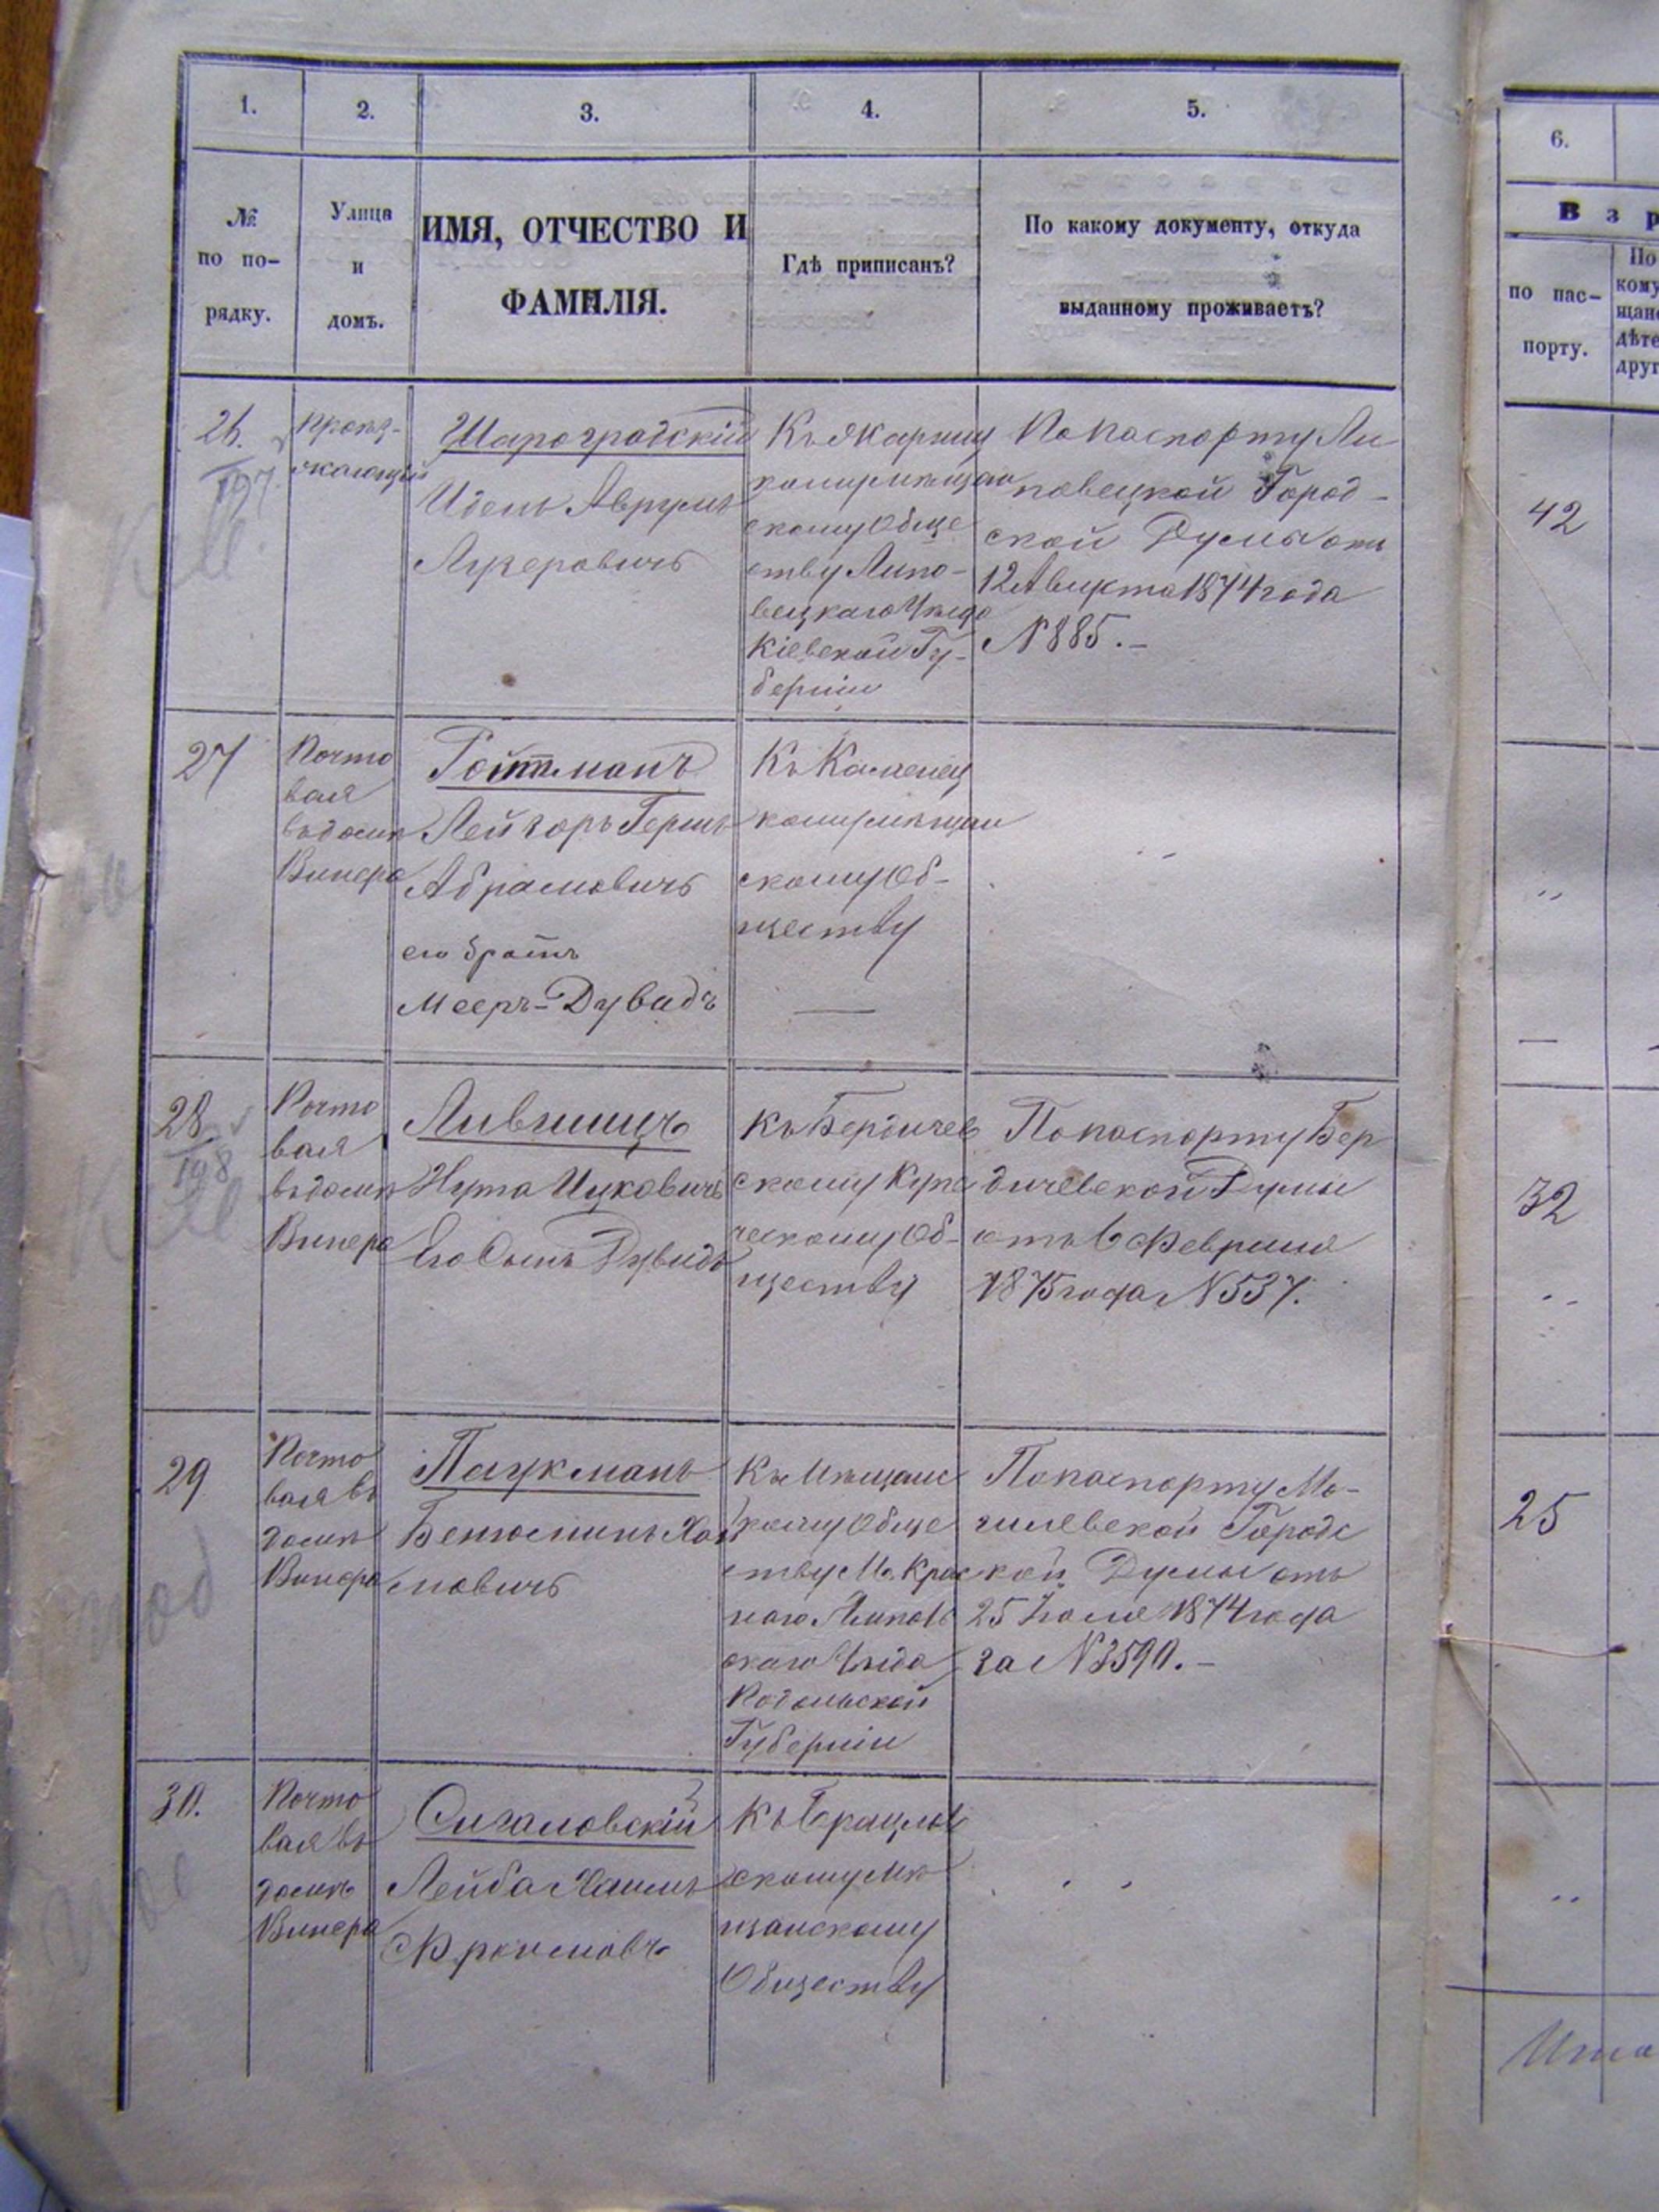 1.
2.
3.
4.
5.
6.
№
по по-
рядку.
Улица
и
домъ.
ИМЯ, ОТЧЕСТВО И
ФАМИЛІЯ.
Гдѣ приписанъ?
По какому документу, откуда
выданному проживаетъ?
В з р
по пас-
порту.
По
кому
щанс
дѣте
друг
26.
197
Шароградскій
Идель Аврумъ
Лузеровичъ
скому Обще
ству Липо-
вецкаго Уѣзда
Кіевской Гу-
берніи
По паспорту Ли
повецкой Город-
ской Думы отъ
12 Августа 1874 года
№ 885.-
42
27
Почто
вая
въ домѣ
Винера
Ройтманъ
Лейзоръ Гершъ
Абрамовичъ
его братъ
Мееръ-Дувидъ
Къ Каменец
кому мѣщан
скому Об-
ществу
28
198
Почто
вая
въ домѣ
Винера
Лившицъ
Нута Ицковичъ
Его Сынъ Дувидъ
Къ Бердичев
скому Купе
ческому Об-
ществу
По паспорту Бер
дичевской Думы
отъ 6 Февраля
1875 года № 537.
32
29
Почто
вая въ
домѣ
Винера
Паукманъ
Беньюминъ Хаи
мовичъ
Къ Мѣщанс
кому Обще
ству М. Крас
наго Ямполь
скаго Уѣзда
Подольской
Губерніи
По паспорту Мо-
гилевской Городс
кой Думы отъ
25 Іюля 1874 года
за № 3590.-
25
30.
Почто
вая въ
домѣ
Винера
Сигаловскій
Лейба Хаимъ
Фроимовъ
Къ Брацлав
скому Мѣ
щанскому
Обществу
Ито